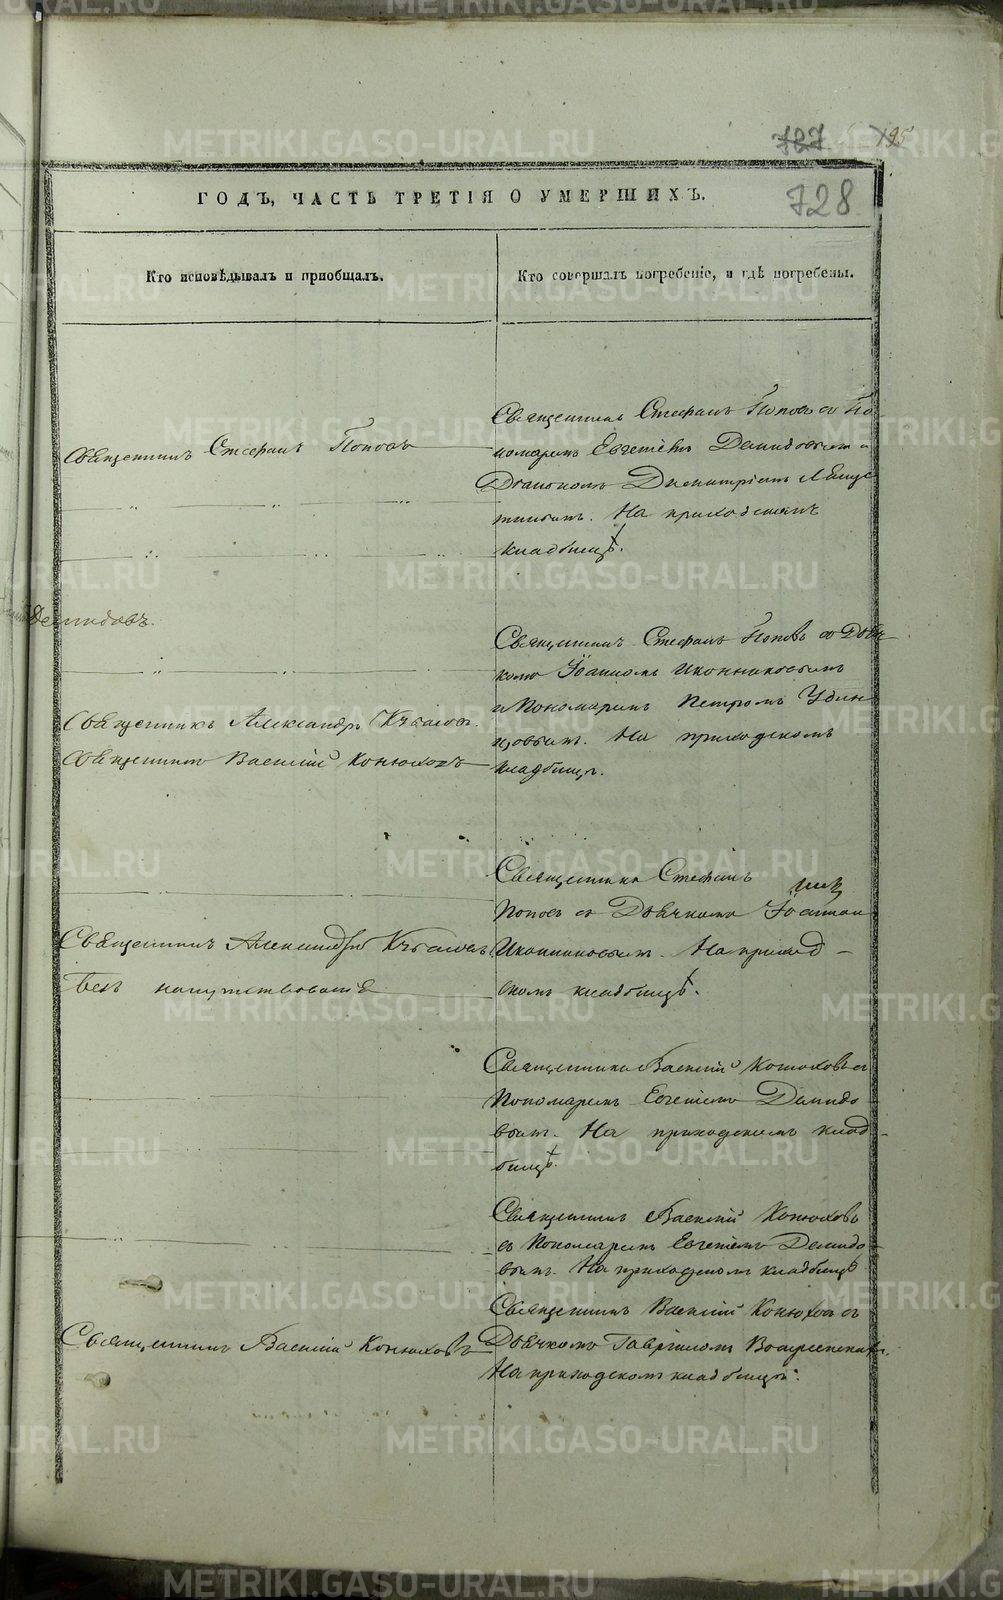 727 195
728
ГОДЪ, ЧАСТЬ ТРЕТІЯ О УМЕРШИХЪ.
Кто исповѣдывалъ и пріобщалъ.
Кто совершалъ погребеніе, и гдѣ погребены.
Священникъ Стефанъ Поповъ
Демидовъ.
Священникъ Александръ
Священникъ Василій Конюховъ
Священникъ Александръ
Безъ напутствованія
Священникъ Василій Конюховъ
Священникъ Стефанъ Поповъ съ По
номаремъ Евгеніемъ Демидовымъ и
Діакономъ Димитріемъ
На приходскомъ
кладбищѣ.
Священникъ Стефанъ Поповъ съ Дьяч
комъ Іоанномъ Иконниковымъ
и Пономаремъ Петромъ Удин
цовымъ. На приходскомъ
кладбищѣ.
Священникъ Стефанъ
Поповъ съ Дьячкомъ Іоанномъ
Иконниковымъ. На приход
скомъ кладбищѣ.
Священникъ Василій Конюховъ съ
Пономаремъ Евгеніемъ Демидо
вымъ. На приходскомъ клад
бищѣ.
Священникъ Василій Конюховъ
съ Пономаремъ Евгеніемъ Демидо
вымъ. На приходскомъ кладбищѣ
Священникъ Василій Конюховъ съ
Дьячкомъ Гавріиломъ Воскресенскимъ.
На приходскомъ кладбищѣ.
METRIKI.GASO-URAL.RU